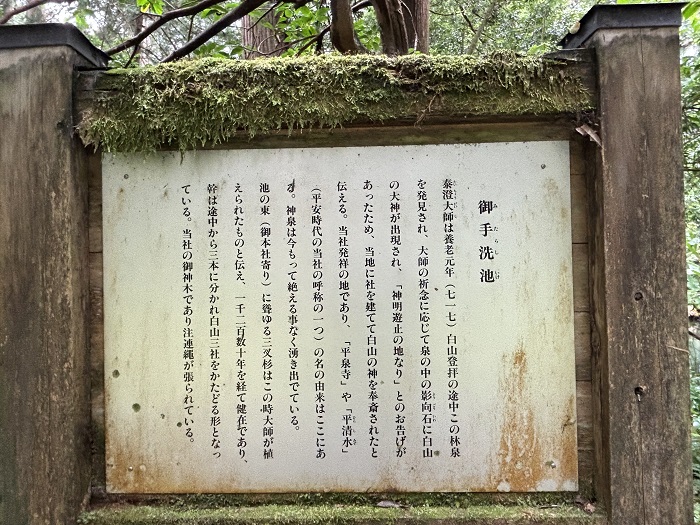 御手洗池
泰澄大師は養老元年（七一七）白山登拝の途中この林泉
を発見され、大師の祈念に応じて泉の中の影向石に白山
の大神が出現され、「神明遊止の地なり」とのお告げが
あったため、当地に社を建てて白山の神を奉斎されたと
伝える。当社発祥の地であり、「平泉寺」や「平清水」
（平安時代の当社の呼称の一つ）の名の由来はここにあ
る。神泉は今もって絶える事なく湧き出でている。
池の東（御本社寄り）に聳ゆる三叉杉はこの時大師が植
えられたものと伝え、一千二百数十年を経て健在であり、
幹は途中から三本に分かれ白山三社をかたどる形となっ
ている。当社の御神木であり注連縄が張られている。